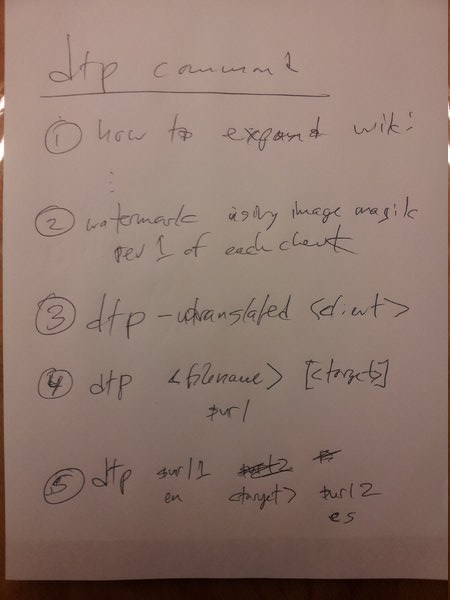 dtp command
① how to expand wiki
⋮
② watermark using image magik
rev 1 of each client
③ dtp -untranslated <client>
④ dtp <filename> [<target>]
$url
⑤ dtp $url1
en <target> $url2
es